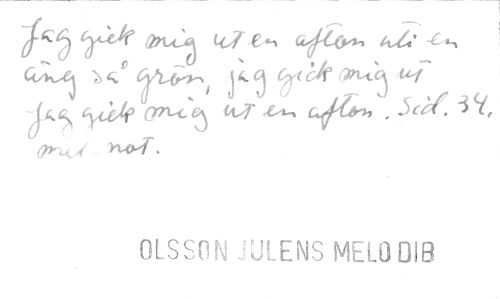 Jag gick mig ut en afton uti en
äng så grön, jag gick mig ut
Jag gick mig ut en afton. Sid. 34.
med not.
OLSSON JULENS MELODIB